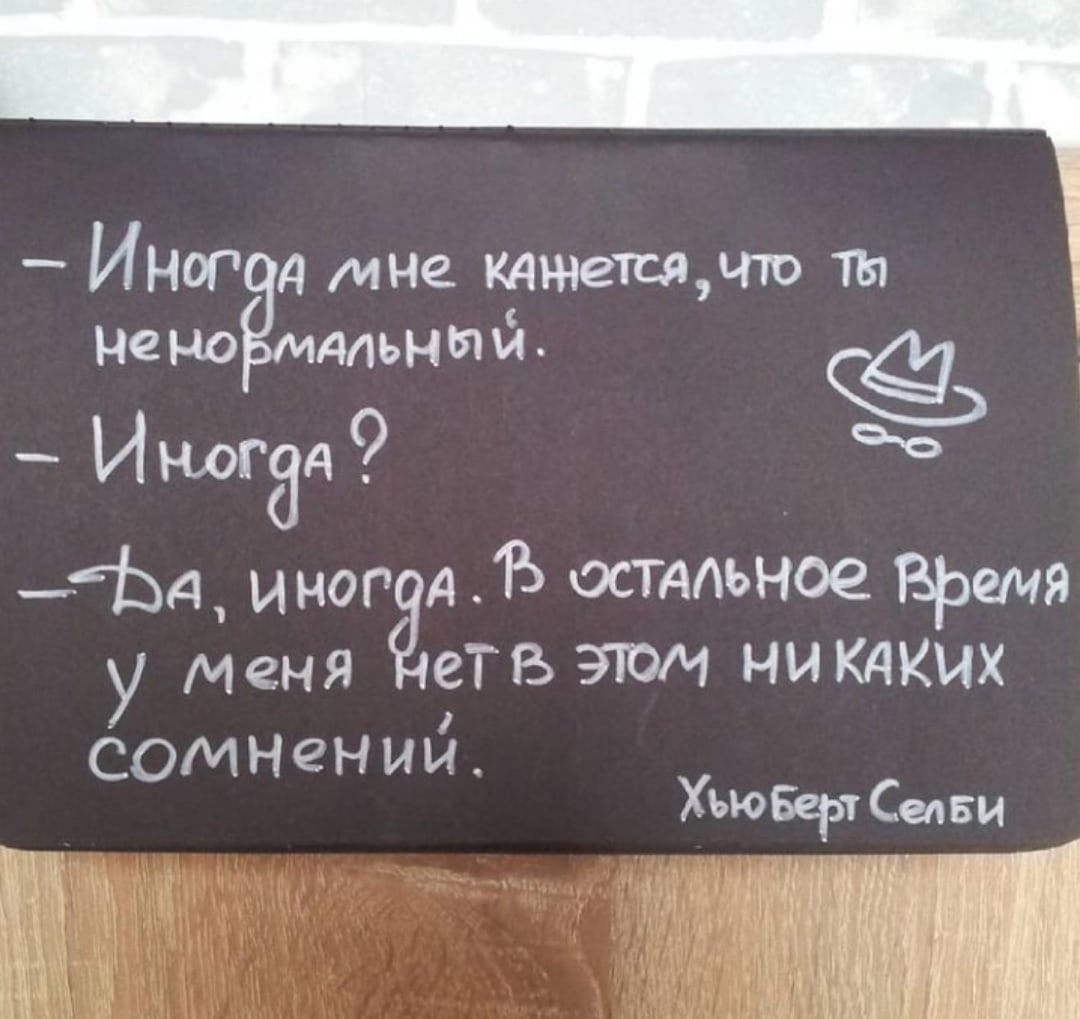 - Иногда мне кажется, что ты
ненормальный.
- Иногда?
- Да, иногда. В остальное время
у меня нет в этом никаких
сомнений.
Хьюберт Селби